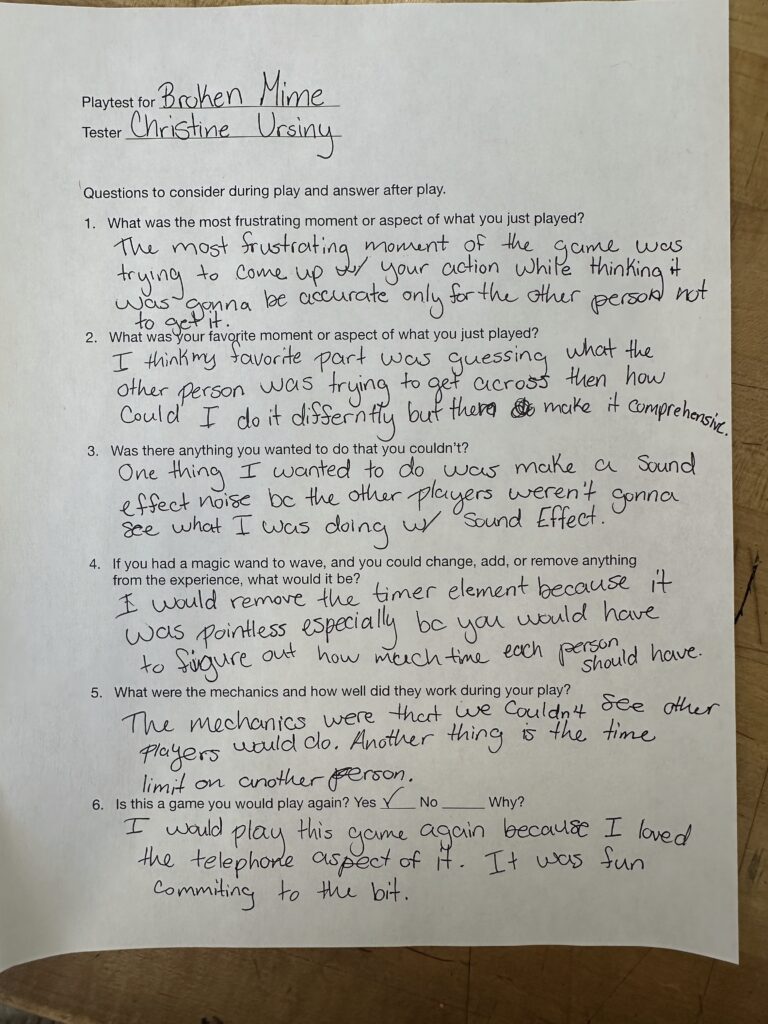 Playtest for Broken Mime
Tester Christine Ursiny
Questions to consider during play and answer after play.
1. What was the most frustrating moment or aspect of what you just played?
The most frustrating moment of the game was
trying to come up w/ your action while thinking it
was gonna be accurate only for the other person not
to get it.
2. What was your favorite moment or aspect of what you just played?
I think my favorite part was guessing what the
other person was trying to get across then how
could I do it differntly but then make it comprehensive.
3. Was there anything you wanted to do that you couldn't?
One thing I wanted to do was make a sound
effect noise bc the other players weren't gonna
see what I was doing w/ Sound Effect.
4. If you had a magic wand to wave, and you could change, add, or remove anything
from the experience, what would it be?
I would remove the timer element because it
was pointless especially bc you would have
to figure out how much time each person
should have.
5. What were the mechanics and how well did they work during your play?
The mechanics were that we couldn't see other
players would do. Another thing is the time
limit on another person.
6. Is this a game you would play again? Yes ✓ No ____ Why?
I would play this game again because I loved
the telephone aspect of it. It was fun
commiting to the bit.